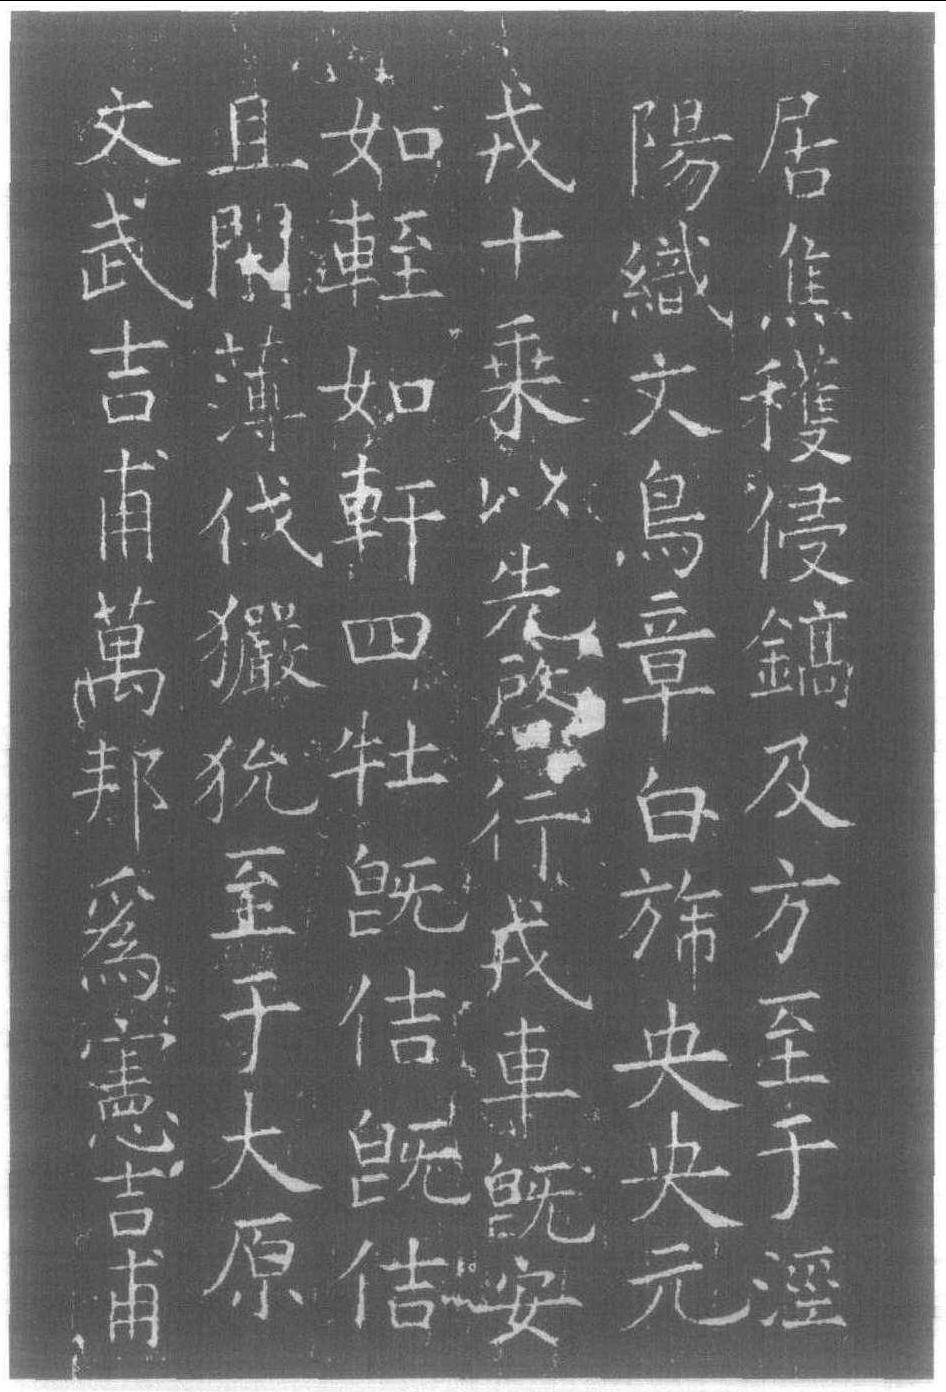 居焦穫侵鎬及方至于涇
陽織文鳥章白斾央央元
戎十乗以先啓行戎車既安
如輊如軒四牡既佶既佶
且閑薄伐玁狁至于大原
文武吉甫萬邦爲憲吉甫